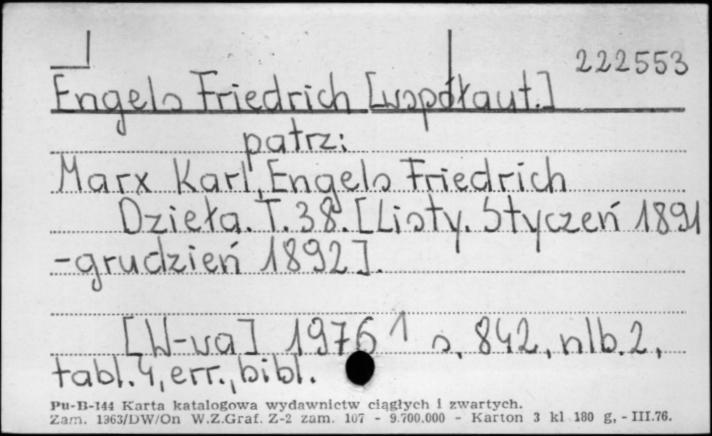 222553
Engels Friedrich [współaut.]
patrz:
Marx Karl, Engels Friedrich
Dzieła. T. 38. [Listy. Styczeń 1891
-grudzień 1892].
[W-wa] 1976¹ s. 842, nlb. 2,
tabl. 4, err., bibl.
Pu-B-144 Karta katalogowa wydawnictw ciągłych i zwartych.
Zam. 1363/DW/On W.Z.Graf. Z-2 zam. 107 - 9.700.000 - Karton 3 kl 180 g, - III.76.